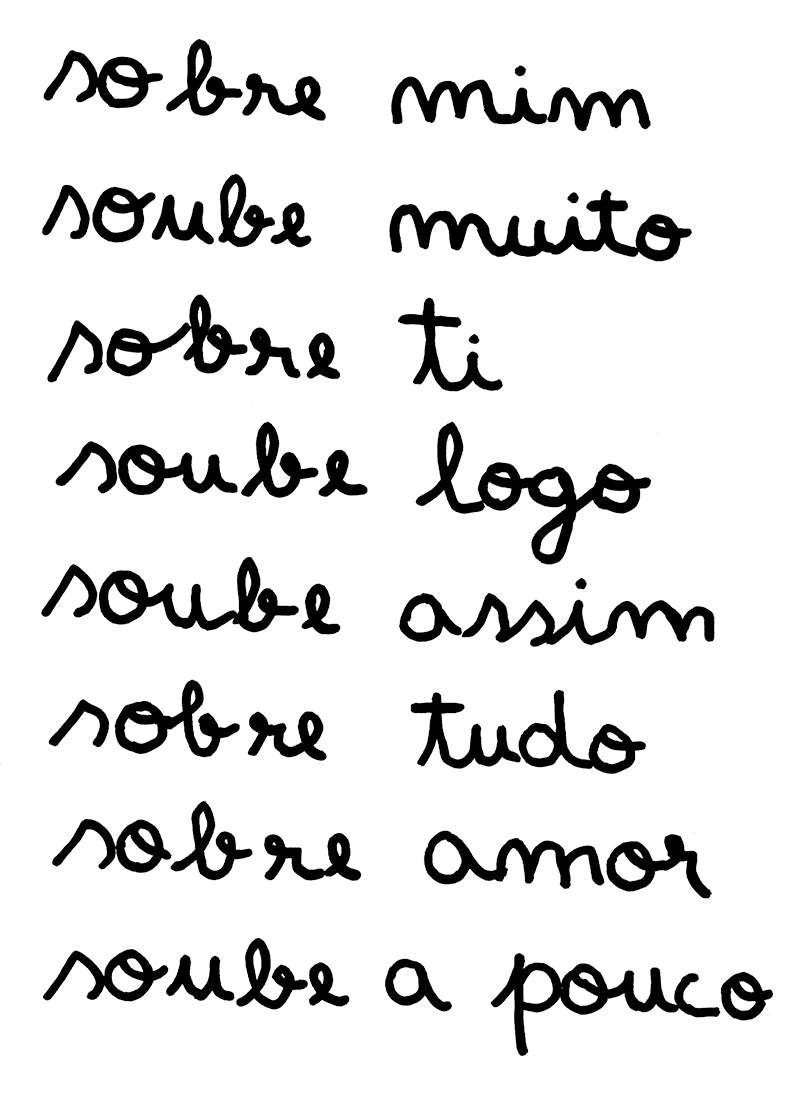 sobre mim
soube muito
sobre ti
soube logo
soube assim
sobre tudo
sobre amor
soube a pouco